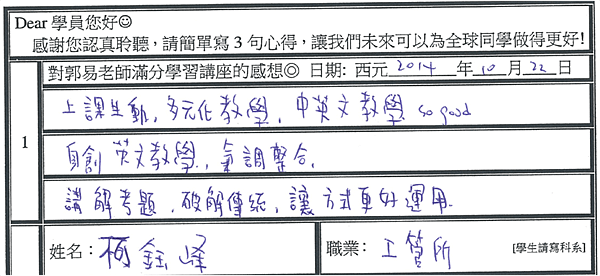 Dear 學員您好☺
感謝您認真聆聽，請簡單寫 3 句心得，讓我們未來可以為全球同學做得更好!
對郭易老師滿分學習講座的感想◎ 日期: 西元 2014 年 10 月 22 日
1
上課生動，多元化教學，中英文教學 so good
自創英文教學，氣調整合，
講解考題，破解傳統，讓方式更好運用.
姓名：柯鈺峰
職業：工管所 [學生請寫科系]